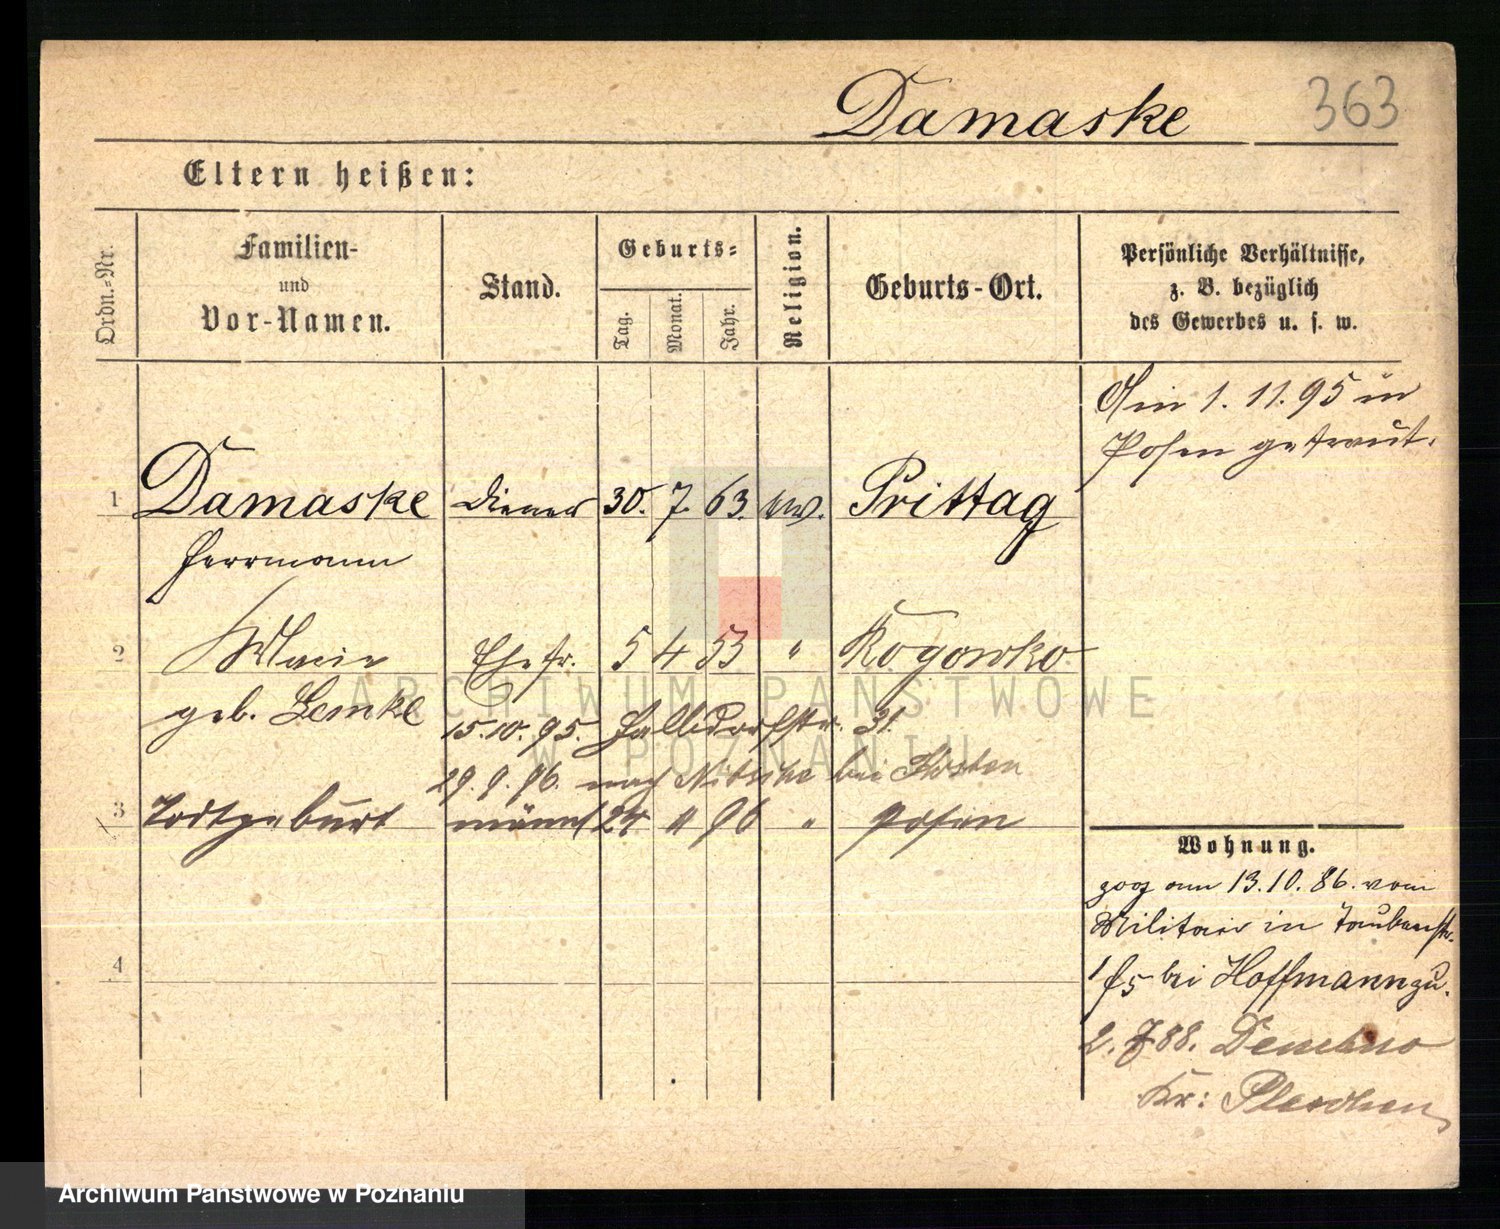 Damaske
363
Eltern heißen:
Ordn.-Nr.
Familien-
und
Vor-Namen.
Stand.
Geburts-
Tag.
Monat.
Jahr.
Religion.
Geburts-Ort.
Persönliche Verhältnisse,
z. B. bezüglich
des Gewerbes u. s. w.
Am 1. 11. 95 in
Posen getraut.
1 Damaske Diener 30. 7. 63. ev. Prittag
Herrmann
2 Marie Ehefr. 5 4 53 " Rogowko
geb. Lemke
15.10.95. Halbdorfstr. 31.
29. 9. 96. nach Nitsche bei Kosten
3 Todtgeburt männl 24 4 96 " Posen
Wohnung.
zog am 13.10.86. vom
Militair in Taubenstr.
bei Hoffmann zu.
4
88.
Kr: Pleschen
ARCHIWUM PAŃSTWOWE
W POZNANIU
Archiwum Państwowe w Poznaniu